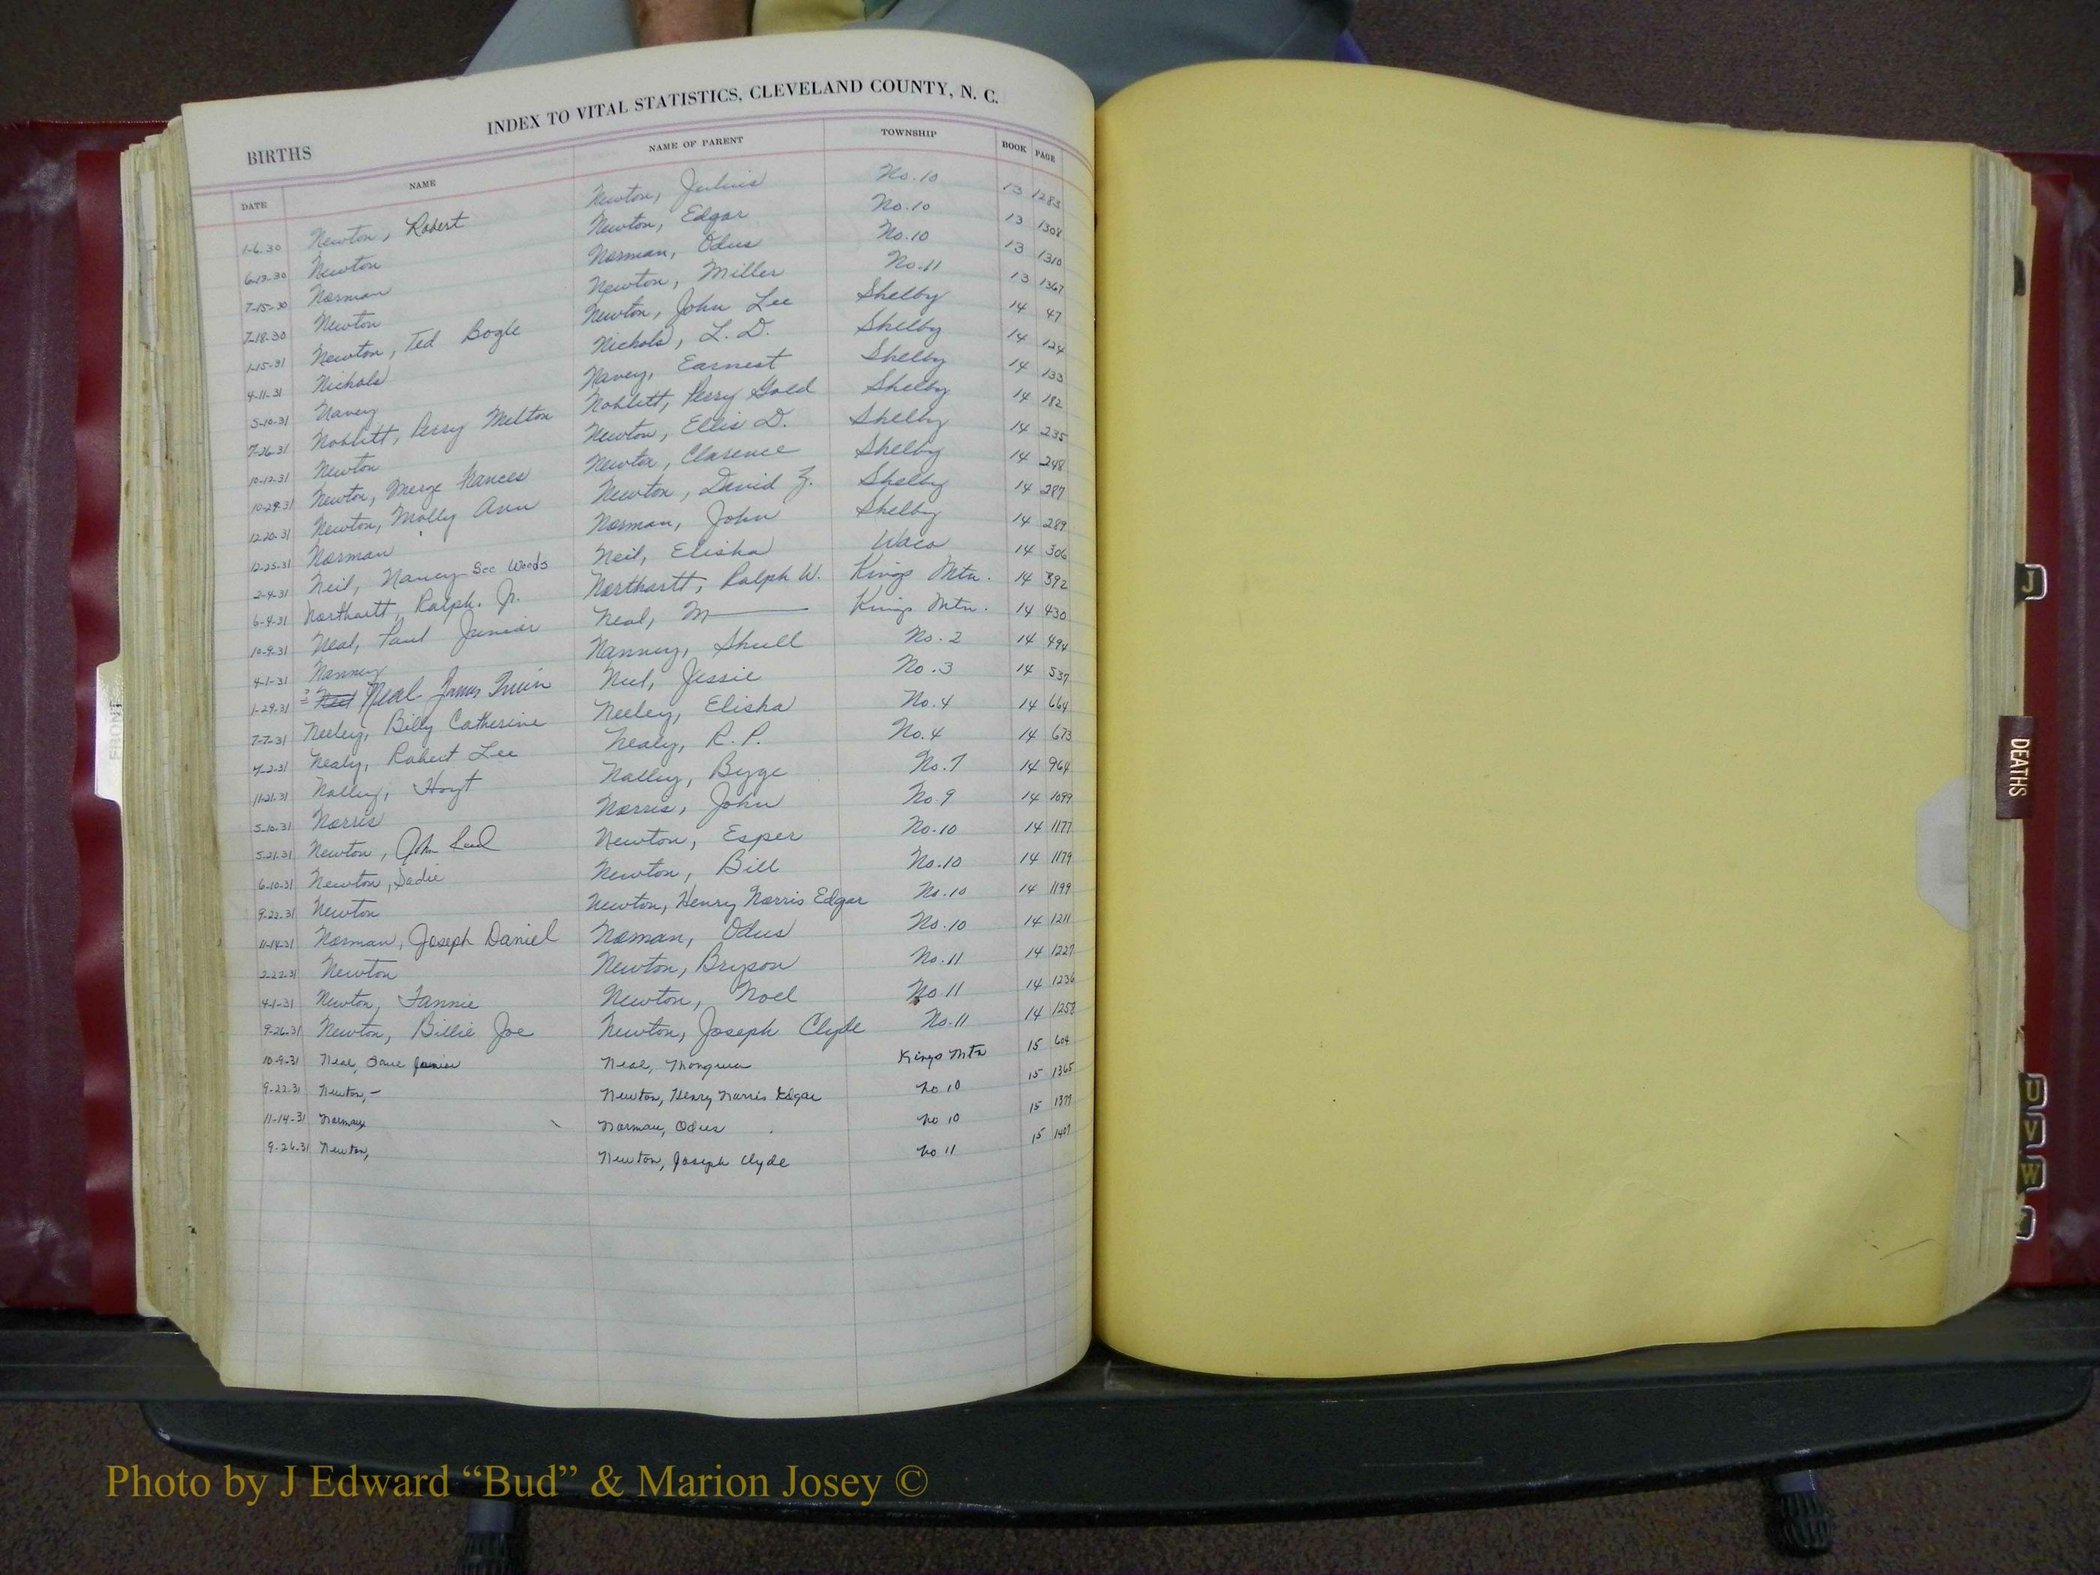 INDEX TO VITAL STATISTICS, CLEVELAND COUNTY, N. C.
BIRTHS
DATE NAME NAME OF PARENT TOWNSHIP BOOK PAGE
1-6-30 Newton, Robert Newton, Julius No. 10 13 1283
6-12-30 Newton Newton, Edgar No. 10 13 1308
7-15-30 Norman Norman, Odus No. 10 13 1310
7-18-30 Newton Newton, Miller No. 11 13 1367
1-15-31 Newton, Ted Bogle Newton, John Lee Shelby 14 47
4-11-31 Nichols Nichols, L. D. Shelby 14 124
5-10-31 Navey Navey, Earnest Shelby 14 133
7-26-31 Noblitt, Perry Melton Noblitt, Perry Gold Shelby 14 182
10-12-31 Newton Newton, Ellis D. Shelby 14 235
10-29-31 Newton, Merge Frances Newton, Clarence Shelby 14 248
12-20-31 Newton, Molly Ann Newton, David Z. Shelby 14 287
12-25-31 Norman Norman, John Shelby 14 289
2-4-31 Neil, Nancy See Woods Neil, Elisha Waco 14 306
6-4-31 Northartt, Ralph. Jr. Northartt, Ralph W. Kings Mtn. 14 392
10-9-31 Neal, Paul Junior Neal, M— Kings Mtn. 14 430
4-1-31 Nanney Nanney, Shull No. 2 14 494
1-29-31 Neal James Neil, Jessie No. 3 14 537
7-7-31 Neeley, Billy Catherine Neeley, Elisha No. 4 14 664
7-2-31 Nealy, Robert Lee Nealy, R. P. No. 4 14 673
11-21-31 Nalley, Hoyt Nalley, Byge No. 7 14 964
5-10-31 Norris Norris, John No. 9 14 1099
5-21-31 Newton, John Newton, Esper No. 10 14 1177
6-10-31 Newton, Sadie Newton, Bill No. 10 14 1179
9-22-31 Newton Newton, Henry Norris Edgar No. 10 14 1199
11-14-31 Norman, Joseph Daniel Noman, Odus No. 10 14 1211
2-22-31 Newton Newton, Bryson No. 11 14 1227
4-1-31 Newton, Fannie Newton, Noel No 11 14 1236
9-26-31 Newton, Billie Joe Newton, Joseph Clyde No. 11 14 1258
10-9-31 Neal, Junior Neal, Kings Mtn 15 604
9-22-31 Newton, - Newton, Henry Norris Edgar No 10 15 1365
11-14-31 Norman Norman, Odus No 10 15 1377
9-26-31 Newton, Newton, Joseph Clyde No 11 15 1407
FRONT
J
DEATHS
U
V
W
Photo by J Edward “Bud” & Marion Josey ©